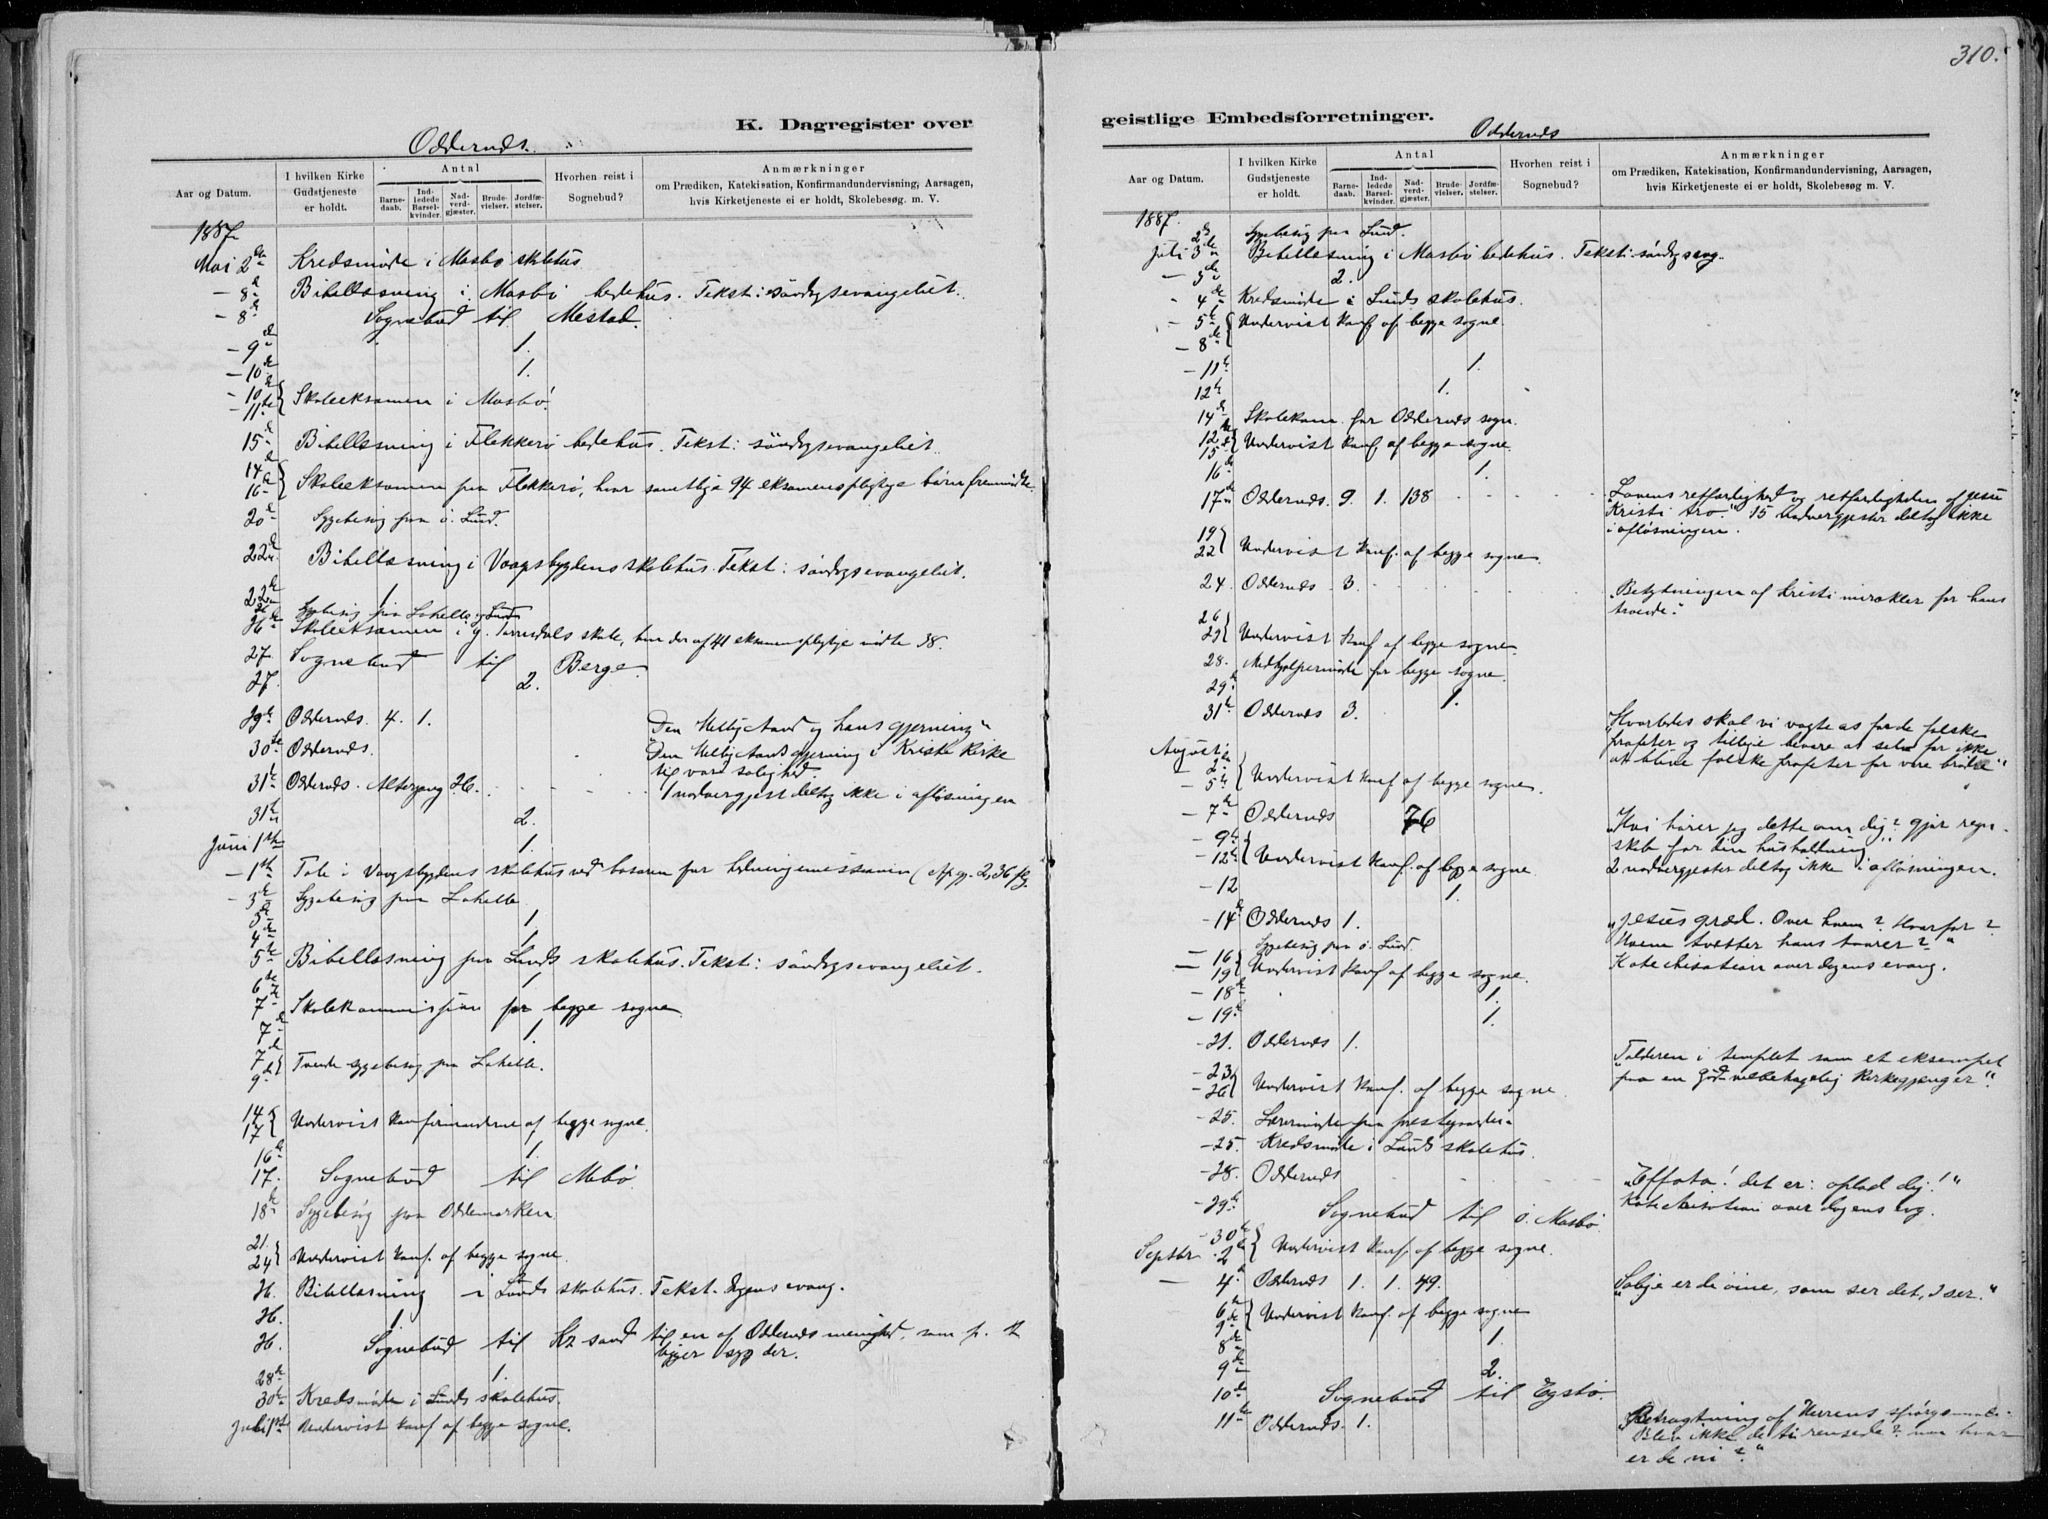 310.
K. Dagregister over
Oddernes.
Aar og Datum.
I hvilken Kirke Gudstjeneste er holdt.
Antal
Barnedaab.
Indledede Barselkvinder.
Nadverdgjæster.
Brudevielser.
Jordfæstelser.
Hvorhen reist i Sognebud?
Anmærkninger
om Prædiken, Katekisation, Konfirmandundervisning, Aarsagen,
hvis Kirketjeneste ei er holdt, Skolebesøg. m. V.
1887.
Mai 2den Kredsmøde i Mosbø skolehus
- 8de Bibellæsning i Mosbø bedehus. Tekst: søndagsevangeliet.
- 8de Sognebud til Mestad.
- 9de 1.
- 10de 1.
- 10de
- 11te } Skoleeksamen i Mosbø.
15de Bibellæsning i Flekkerø bedehus. Tekst: søndagsevangeliet.
14de
16de } Skoleeksamen paa Flekkerø, hvor samtlige 94 eksamenspligtige børn fremmødte
20de Sygebesøg paa ø. Lund.
22de Bibellæsning i Vaagsbygdens skolehus. Tekst: søndagsevangeliet.
22de 1
Sygebesøg paa Lahelle og Lund
26de Skoleeksamen i g. Torresdals skole, hvor der af 41 eksamenspligtige mødte 38.
27. Sognebud til Berge.
27. 2.
29de Oddernes. 4. 1. "Den Helligaand og hans gjerning"
30te Oddernes. "Den Helligaands gjerning i Kristi Kirke
til vor salighed.
31te Oddernes. Altergang 26. 1 nadvergjest deltog ikke i afløsningen
31te 2.
Juni 1ste 1.
- 1ste Tale i Vaagsbygdens skolehus ved basaren for hedningemissionen (Ap. gj. 2,36 flg.
- 3de Sygebesøg paa Lahelle.
3de 1
4de 1.
5te Bibellæsning paa Lunds skolehus. Tekst: søndagsevangeliet.
6te 1
7de Skolekommission for begge sogne
7de 1.
7de
9de } Tvende sygebesøg paa Lahelle.
14
17 } Undervist konfirmanderne af begge sogne.
16de 1.
17. Sognebud til Mebø
18de Sygebesøg paa Oddemarken
21.
24 } Undervist konf. af begge sogne.
26. Bibellæsning i Lunds skolehus. Tekst. Dagens evang.
26. 1.
26. Sognebud til Kr.sand til en af Oddernes menighed, som p. t.
ligger syg der.
28de 1.
30te Kredsmøde i Lunds skolehus.
Juli 1ste Undervist konf af begge sogne.
geistlige Embedsforretninger.
Oddernes
Aar og Datum.
I hvilken Kirke Gudstjeneste er holdt.
Antal
Barnedaab.
Indledede Barselkvinder.
Nadverdgjæster.
Brudevielser.
Jordfæstelser.
Hvorhen reist i Sognebud?
Anmærkninger
om Prædiken, Katekisation, Konfirmandundervisning, Aarsagen,
hvis Kirketjeneste ei er holdt, Skolebesøg m. V.
1887.
2de Sygebesøg paa Lund.
Juli 3de Bibellæsning i Mosbø bedehus. Tekst: søndagsevg.
- 3de 2.
- 4de Kredsmøde i Lunds skolehus.
- 5te
- 8de } Undervist konf. af begge sogne.
- 11te 1.
12te 1.
14de Skolekom. for Oddernes sogn.
12te
15de } Undervist konf. af begge sogne.
16de 1.
17de Oddernes. 9. 1. 138 "Lovens retfærdighed og retfærdigheden af Jesu
Kristi tro." 15 nadvergjester deltog ikke
i afløsningen.
19
22 } Undervist konf. af begge sogne
24. Oddernes 3. "Betydningen af Kristi mirakler for hans
troende."
26
29 } Undervist konf. af begge sogne.
28. Medhjelpermøde for begge sogne.
29de 1.
31te Oddernes 3. "Hvorledes skal vi vogte os for de falske
profeter og tillige bevare os selv for ikke
at blive falske profeter for vore brødre"
August
- 2den
- 5te } Undervist konf. af begge sogne.
- 7de Oddernes 76 "Hvi hører jeg dette om dig? gjør regn-
skab for din husholdning"
2 nadvergjester deltog ikke i afløsningen.
- 9de
- 12te } Undervist konf. af begge sogne
- 12 1.
- 14de Oddernes 1. "Jesus græd. Over hvem? Hvorfor?
Hvem tvætter hans taarer?"
Katechisation over dagens evang.
Sygebesøg paa ø. Lund.
- 16
- 19 } Undervist konf. af begge sogne.
- 18de 1.
- 19de 1.
- 21. Oddernes 1. "Tolderen i templet som et eksempel
paa en Gud velbehagelig Kirkegjænger".
- 23
- 26 } Undervist konf. af begge sogne.
- 25. Læremøde paa prestegaarden
- 25. Kredsmøde i Lunds skolehus.
- 28. Oddernes "Effata! det er: oplad dig!"
Katechisation over dagens evg.
- 29de Sognebud til ø. Mosbø.
- 30te
Septbr. 2den } Undervist konf. af begge sogne.
- 4de Oddernes 1. 1. 49. "Salige er de øine, som ser det, I ser."
6te
9de } Undervist konf. af begge sogne
8de 1.
9de 2.
10de Sognebud til Egstø.
11te Oddernes. 1. Betragtning af Herrens spørgsmaal:
"Blev ikke de ti rensede? men hvor
er de ni?"